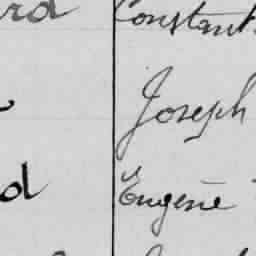 rd Constant
Joseph
d Eugène